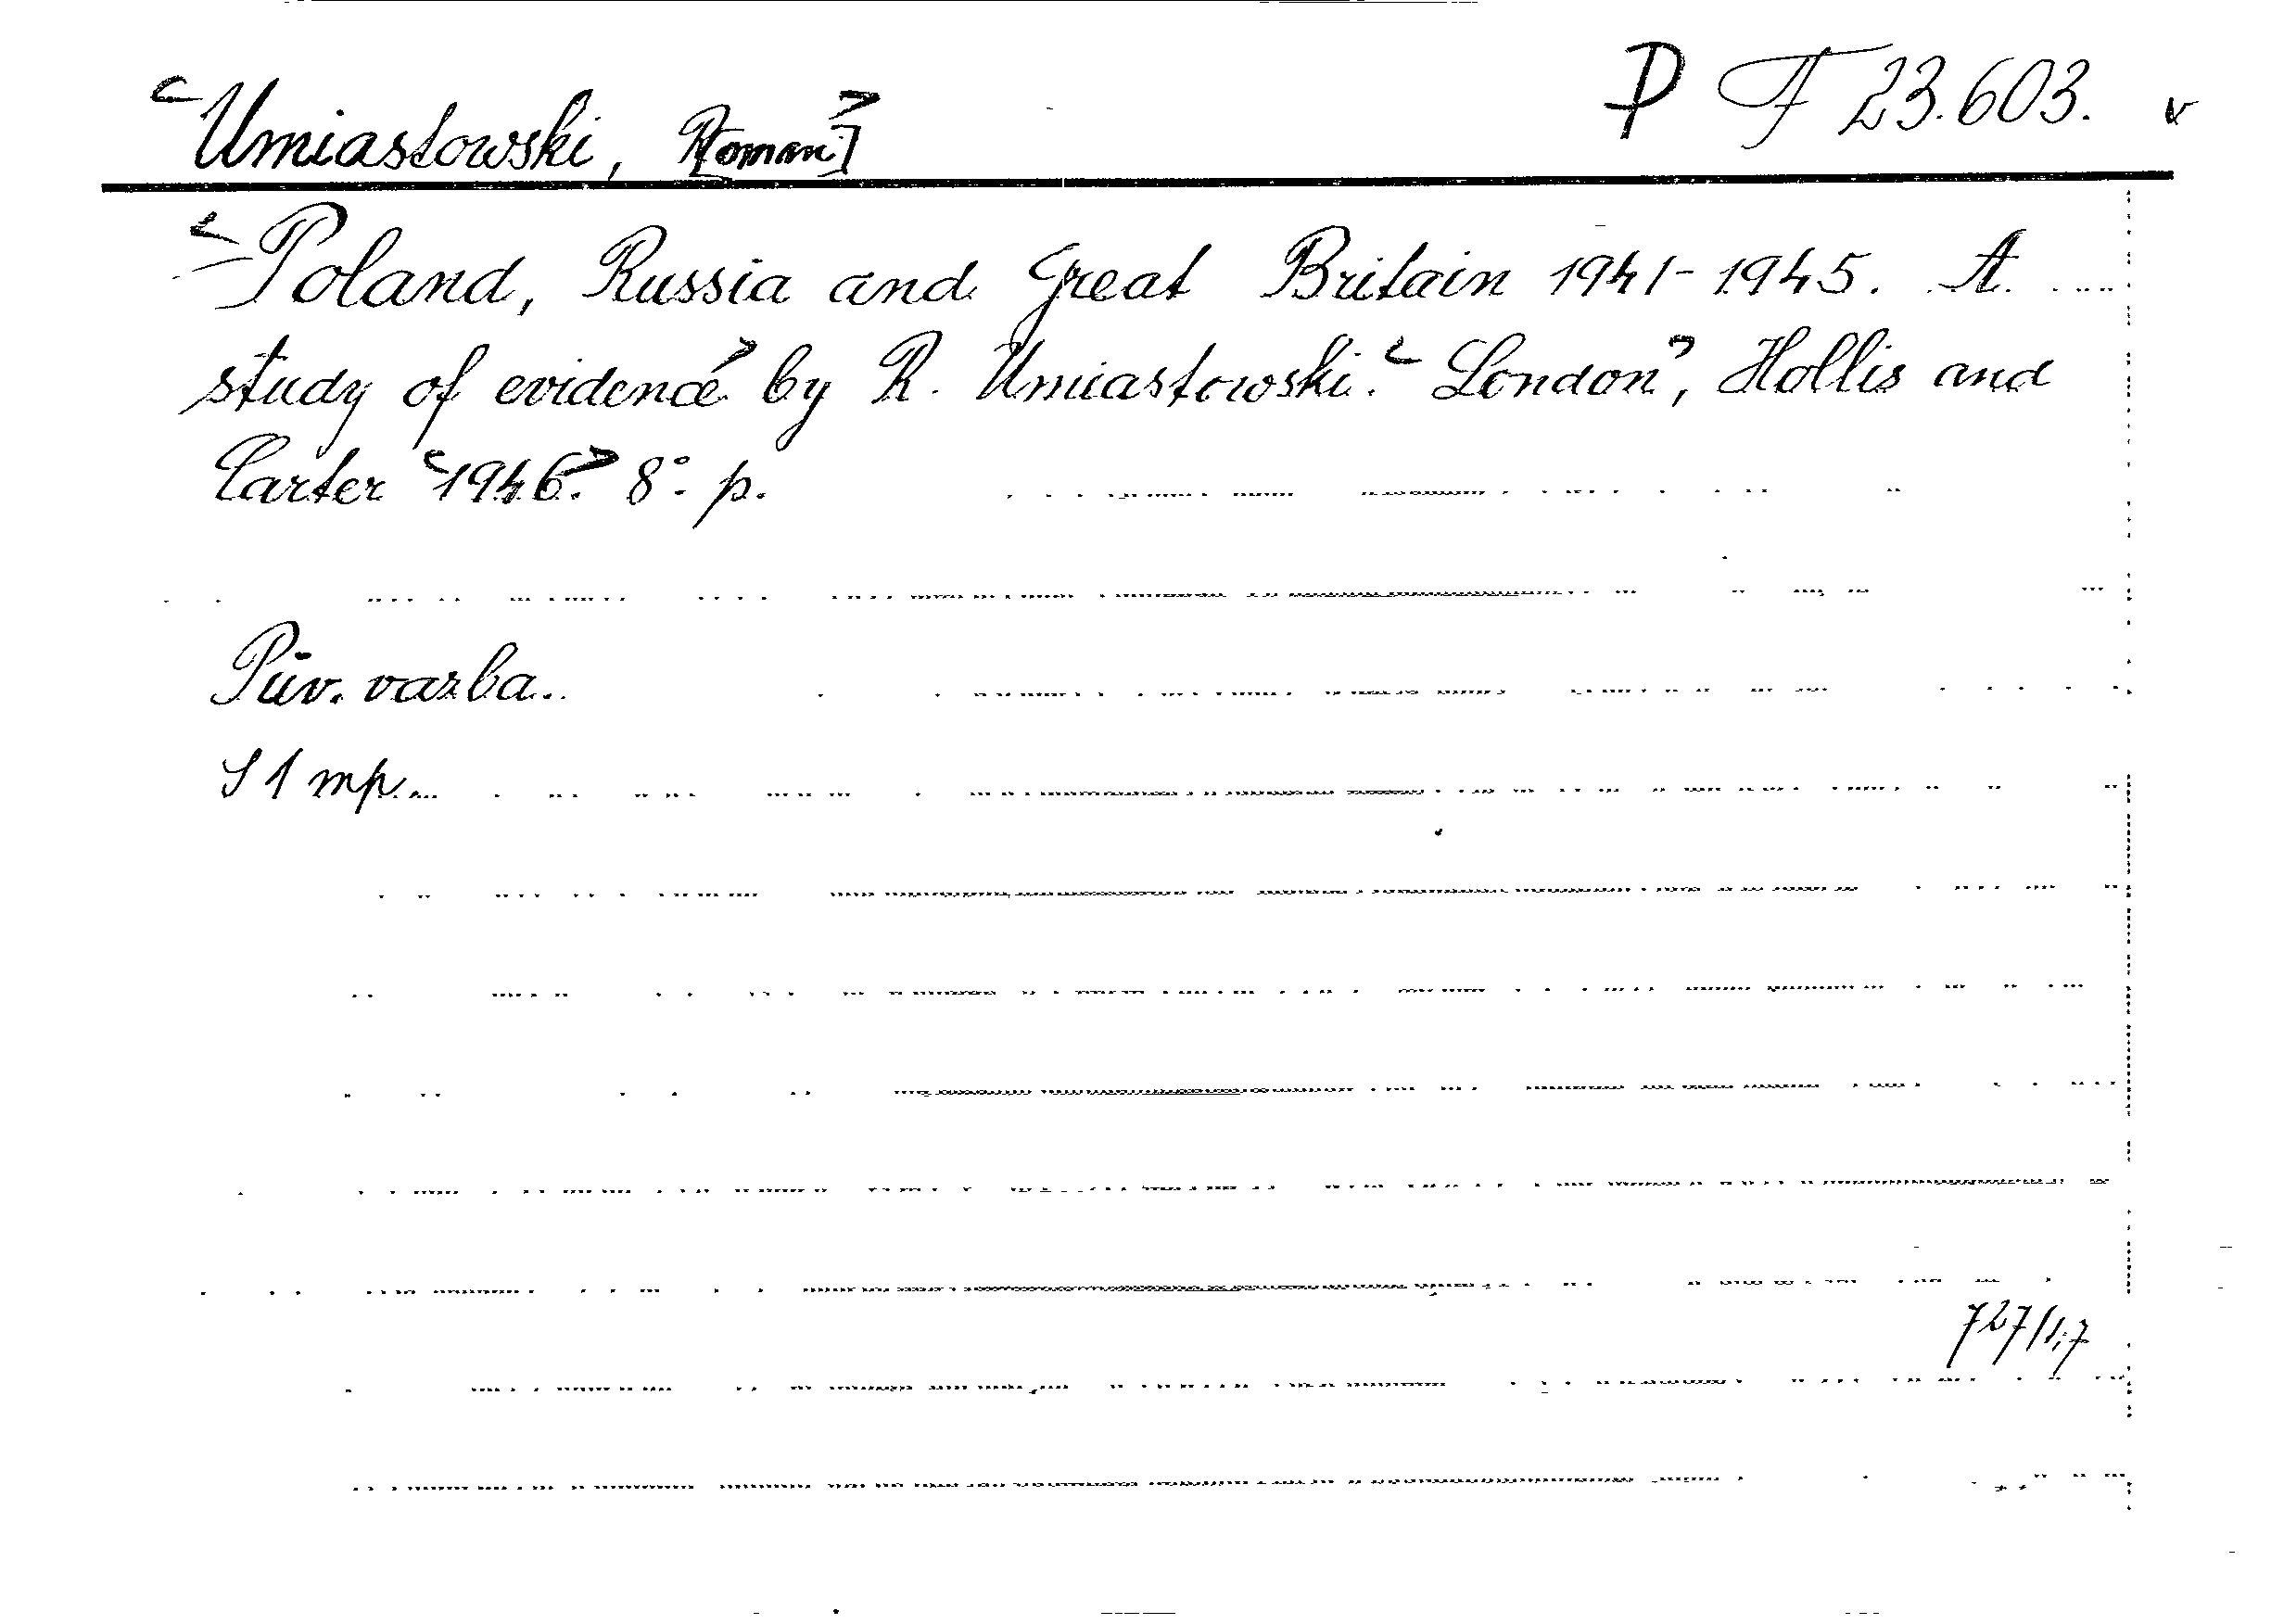 P F 23.603. v
<Umiastowski, R[oman]>
<Poland, Russia and Great Britain 1941-1945. A
study of evidence> by R. Umiastowski. <London>, Hollis and
Carter <1946.> 8°. p.
Pův. vazba.
S 1 mp.
727/47